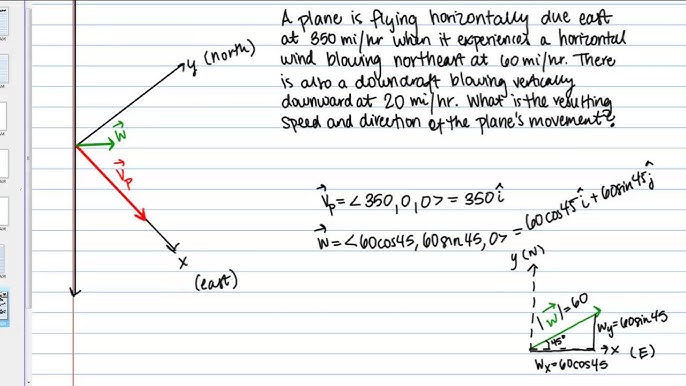 A plane is flying horizontally due east
at 350 mi/hr when it experiences a horizontal
wind blowing northeast at 60 mi/hr. There
is also a downdraft blowing vertically
downward at 20 mi/hr. What is the resulting
speed and direction of the plane's movement?
y (north)
w⃗
v⃗p
x
(east)
v⃗p = <350, 0, 0> = 350î
w⃗ = <60cos45, 60sin45, 0> = 60cos45î + 60sin45ĵ
y (N)
|w⃗| = 60
wy = 60sin45
45°
x (E)
wx = 60cos45